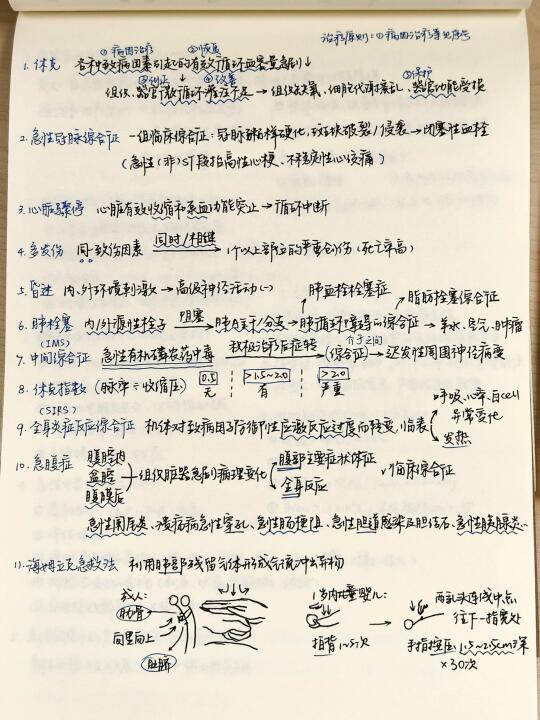 治疗原则：①病因治疗
①病因治疗 ②恢复
1. 休克 各种致病因素引起的有效循环血容量急剧↓
③纠正 ④改善 ⑤保护
组织、器官微循环灌注不足 → 组织缺氧、细胞代谢紊乱、器官功能受损
2. 急性冠脉综合征 一组临床综合征：冠脉粥样硬化，斑块破裂/侵袭 → 闭塞性血栓
(急性(非)ST段抬高性心梗、不稳定性心绞痛)
3. 心脏骤停 心脏有效收缩和泵血功能突止 → 循环中断
4. 多发伤 同一致伤因素 同时/相继 1个以上部位的严重创伤(死亡率高)
5. 昏迷 内、外环境刺激 → 高级神经活动(-)
肺血栓栓塞症 脂肪栓塞综合征
6. 肺栓塞 内/外源性栓子 阻塞 肺A主干/分支 → 肺循环障碍的综合征 → 羊水、空气、肿瘤
(IMS)
7. 中间综合征 急性有机磷农药中毒 积极治疗后症转 (综合征) 介于之间 迟发性周围神经病变
8. 休克指数 (脉率÷收缩压) 0.5 无 >1.5~2.0 有 >2.0 严重
(SIRS)
9. 全身炎症反应综合征 机体对致病因子防御性应激反应过度而转变，临表 呼吸、心率、白cell异常变化 发热
10. 急腹症 腹腔内 盆腔 腹膜后 组织脏器急剧病理变化 腹部主要症状体征 全身反应 临床综合征
急性阑尾炎、溃疡病急性穿孔、急性肠梗阻、急性胆道感染及胆结石、急性胰腺炎
11. 海姆立克急救法 利用肺部残留气体形成气流冲出异物
成人：
肋骨
向里向上
肚脐
1岁内儿童婴儿：
拍背1~5次
两乳头连线中点
往下一指宽处
手指按压1.5~2.5cm深
×30次